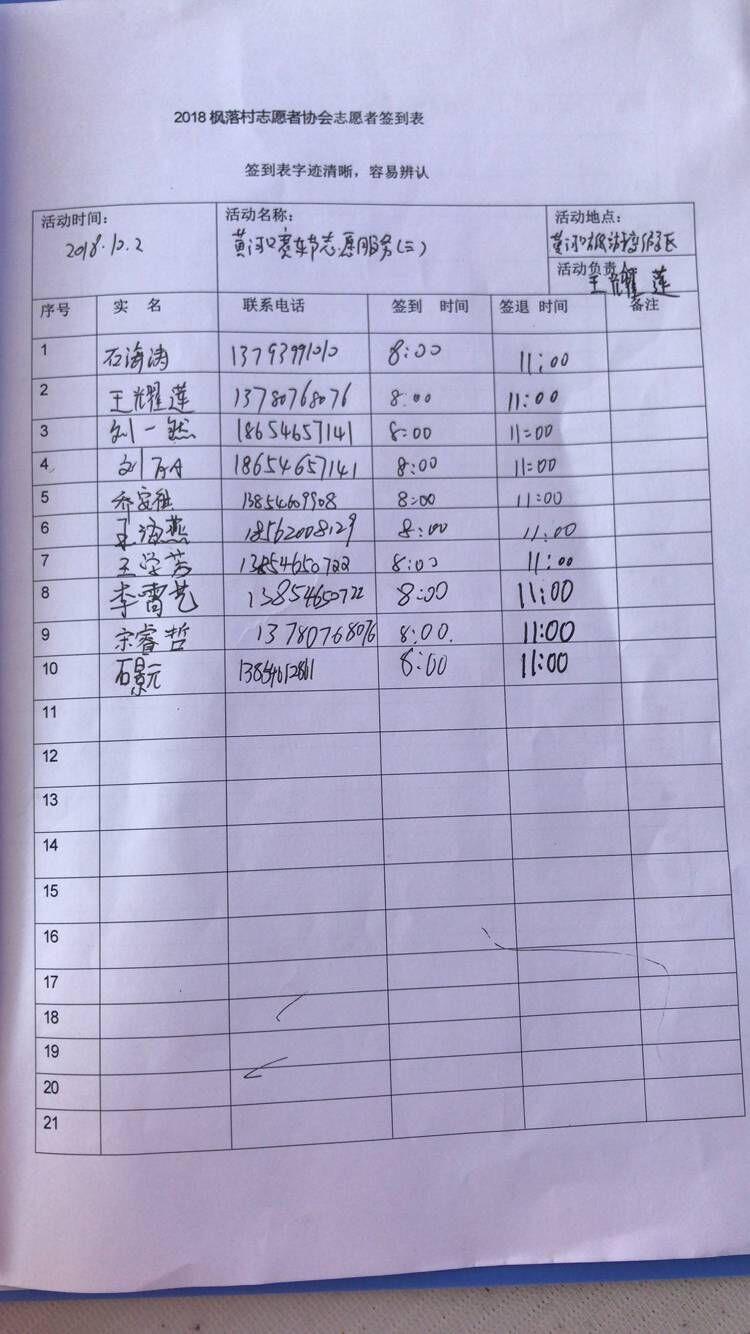 2018 枫落村志愿者协会志愿者签到表
签到表字迹清晰，容易辨认
活动时间： 活动名称： 活动地点：
2018.10.2 黄河口赛车节志愿服务(三) 黄河口
活动负责人 王耀莲
序号 实 名 联系电话 签到 时间 签退 时间 备注
1 石海涛 13793991010 8:00 11:00
2 王耀莲 13780768076 8:00 11:00
3 刘一然 18654657141 8:00 11:00
4 刘 18654657141 8:00 11:00
5 乔 13854609908 8:00 11:00
6 王海燕 18562008129 8:00 11:00
7 王学芳 13854650722 8:00 11:00
8 李霄艺 13854650722 8:00 11:00
9 宗睿哲 13780768076 8:00. 11:00
10 石景元 13854612861 8:00 11:00
11
12
13
14
15
16
17
18
19
20
21